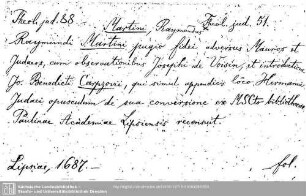 Theol. jud. 58
Theol. jud. 51.
Martini, Raymundus
Raymundi Martini pugio fidei, adversus Mauros et
Judaeos, cum observationibus Josephi de Voisin, et introductione
Jo. Benedicti Carpzovi, qui simul appendicis loco Hermanni
Judaei opusculum de sua conversione ex MSCto bibliothecae
Paulinae Academiae Lipsiensis recensuit.
Lipsiae, 1687. — fol.